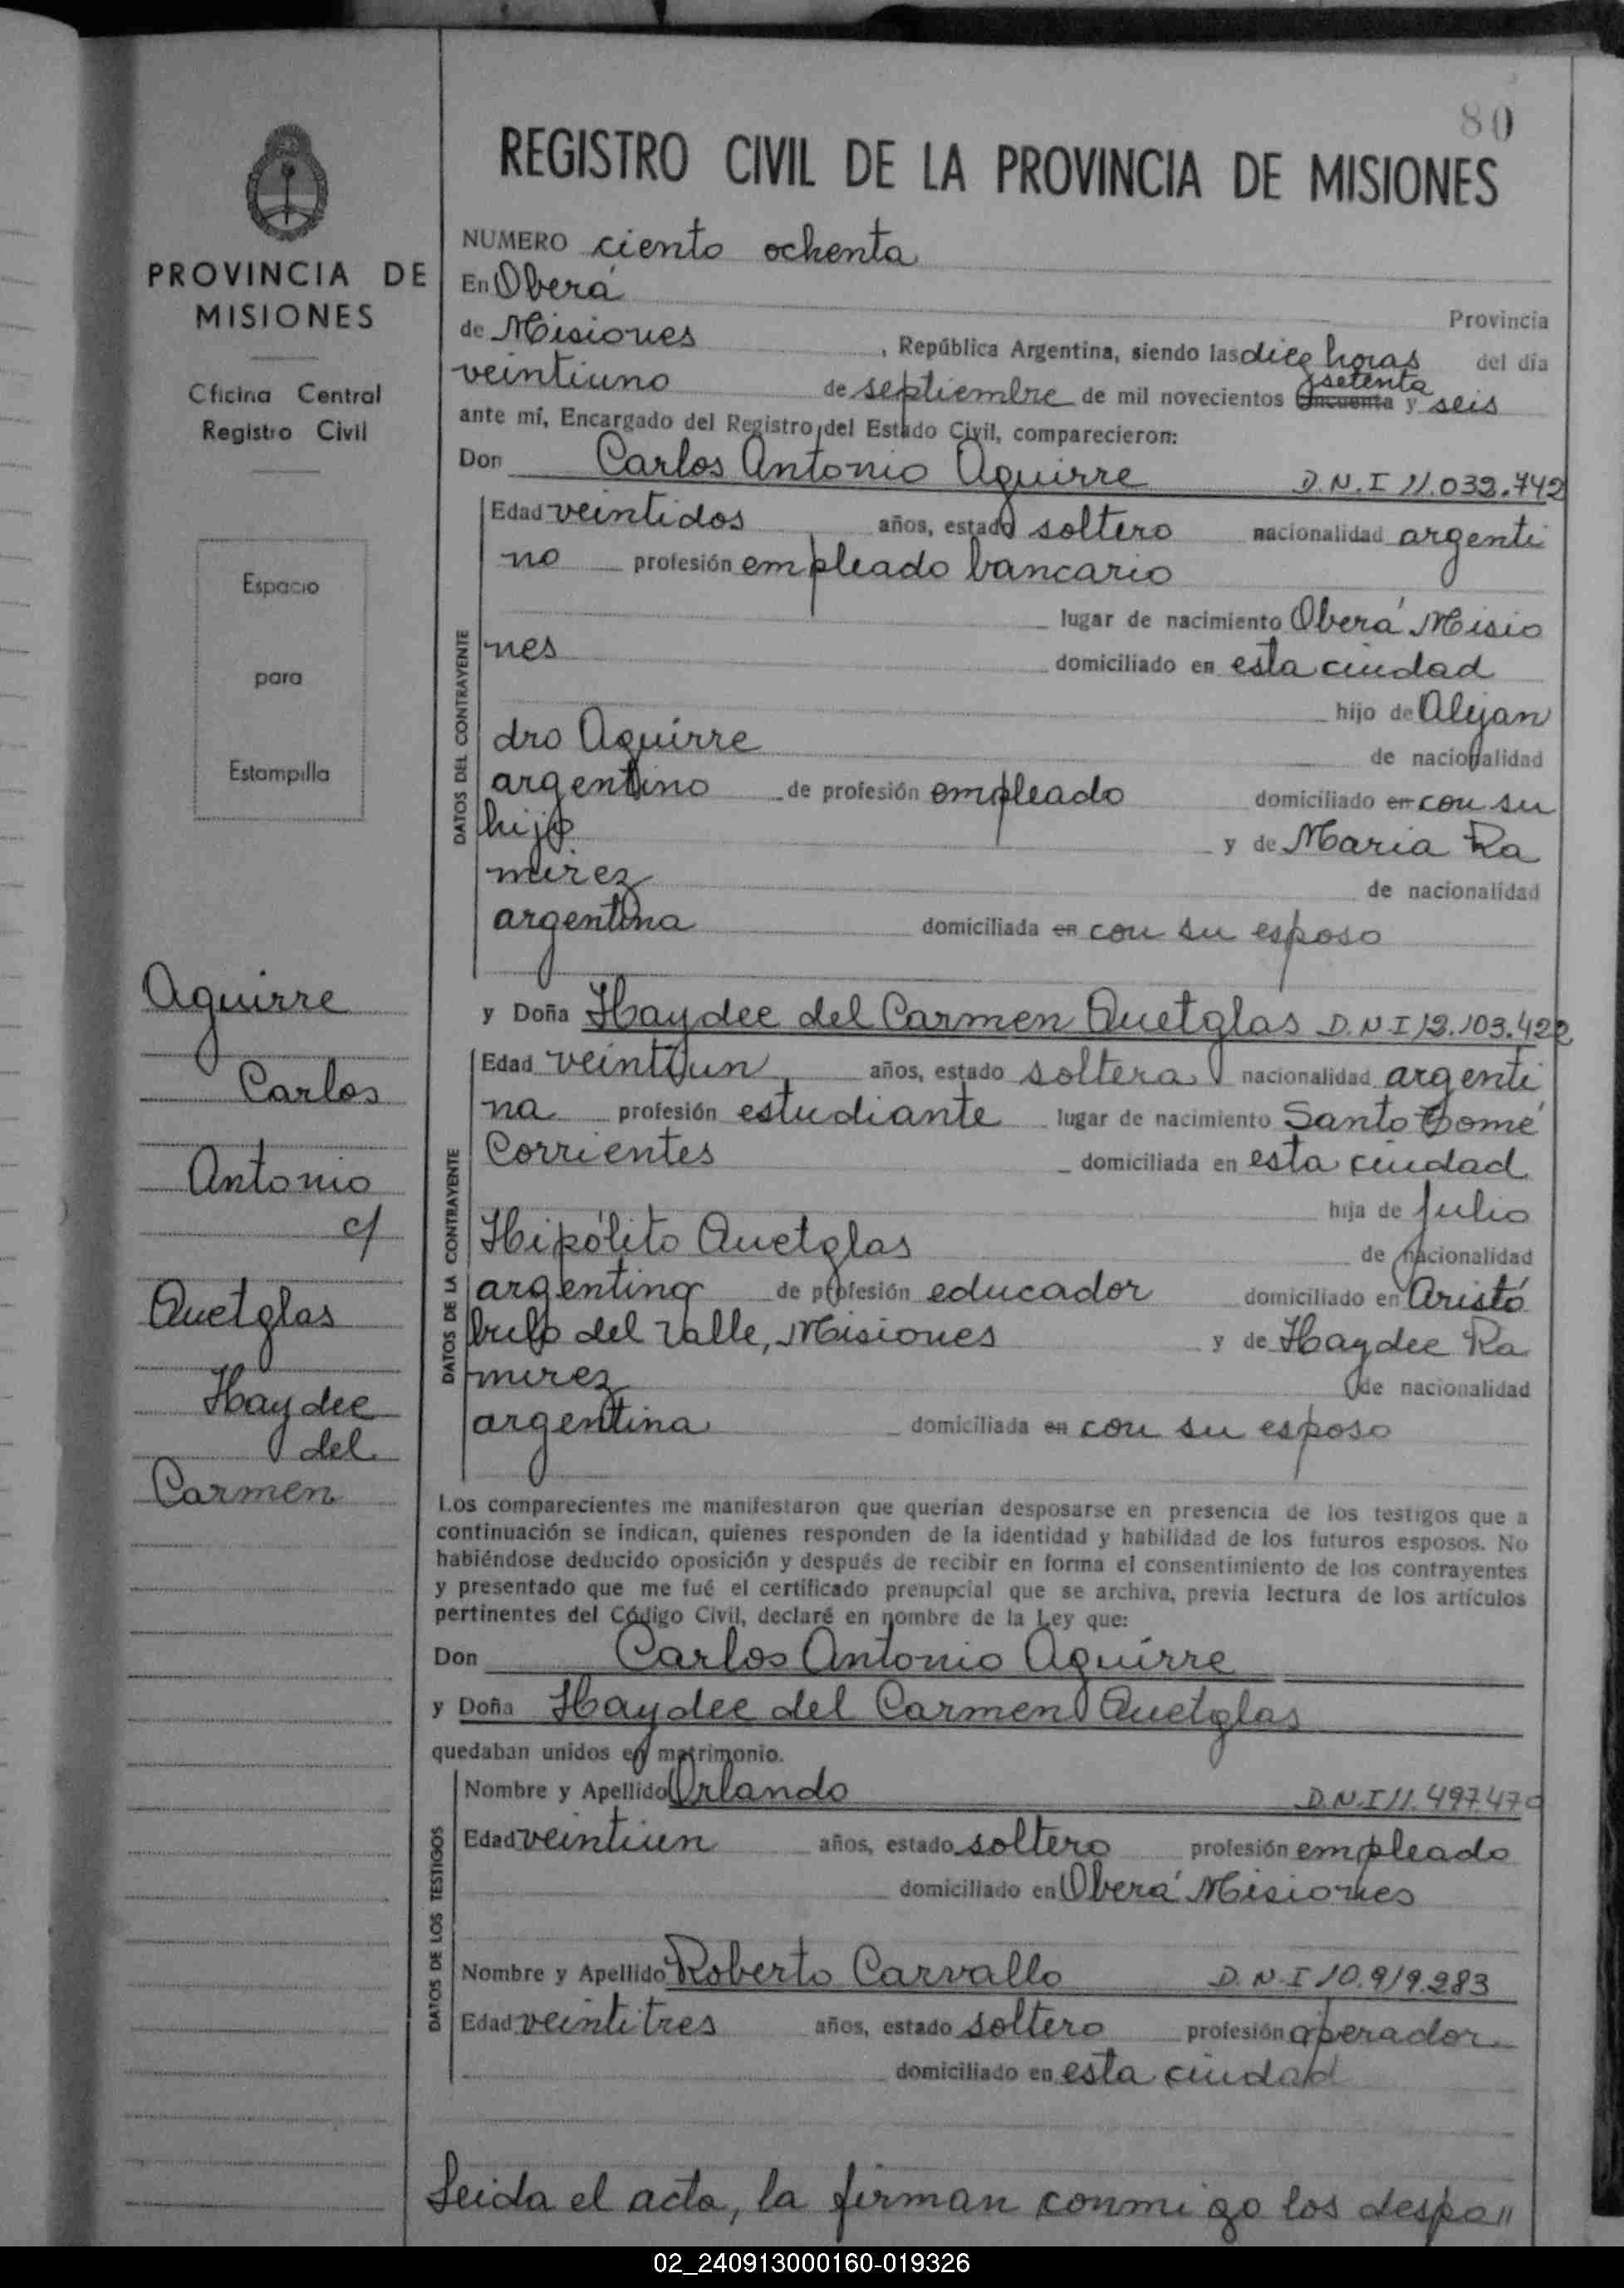 80
REGISTRO CIVIL DE LA PROVINCIA DE MISIONES
PROVINCIA DE
MISIONES
Oficina Central
Registro Civil
Espacio
para
Estampilla
Aguirre
Carlos
Antonio
c/
Quetglas
Haydee
del
Carmen
NUMERO ciento ochenta
En Oberá
Provincia
de Misiones, República Argentina, siendo las diez horas del día
setenta
veintiuno de septiembre de mil novecientos cincuenta y seis
ante mí, Encargado del Registro del Estado Civil, comparecieron:
Don Carlos Antonio Aguirre D.N.I 11.032.742
DATOS DEL CONTRAYENTE
Edad veintidos años, estado soltero nacionalidad argenti
no profesión empleado bancario
lugar de nacimiento Oberá Misio
nes domiciliado en esta ciudad
hijo de Alejan
dro Aguirre de nacionalidad
argentino de profesión empleado domiciliado en con su
hijo y de Maria Ra
mirez de nacionalidad
argentina domiciliada en con su esposo
y Doña Haydee del Carmen Quetglas D.N.I 12.103.422
DATOS DE LA CONTRAYENTE
Edad veintiun años, estado soltera nacionalidad argenti
na profesión estudiante lugar de nacimiento Santo Tomé
Corrientes domiciliada en esta ciudad
hija de Julio
Hipólito Quetglas de nacionalidad
argentino de profesión educador domiciliado en Aristó
bulo del Valle, Misiones y de Haydee Ra
mirez de nacionalidad
argentina domiciliada en con su esposo
Los comparecientes me manifestaron que querían desposarse en presencia de los testigos que a
continuación se indican, quienes responden de la identidad y habilidad de los futuros esposos. No
habiéndose deducido oposición y después de recibir en forma el consentimiento de los contrayentes
y presentado que me fué el certificado prenupcial que se archiva, previa lectura de los artículos
pertinentes del Código Civil, declaré en nombre de la Ley que:
Don Carlos Antonio Aguirre
y Doña Haydee del Carmen Quetglas
quedaban unidos en matrimonio.
DATOS DE LOS TESTIGOS
Nombre y Apellido Orlando D.N.I 11.497.470
Edad veintiun años, estado soltero profesión empleado
domiciliado en Oberá Misiones
Nombre y Apellido Roberto Carvallo D.N.I 10.919.283
Edad veintitres años, estado soltero profesión operador
domiciliado en esta ciudad
Leida el acta, la firman conmigo los despo"
02_240913000160-019326